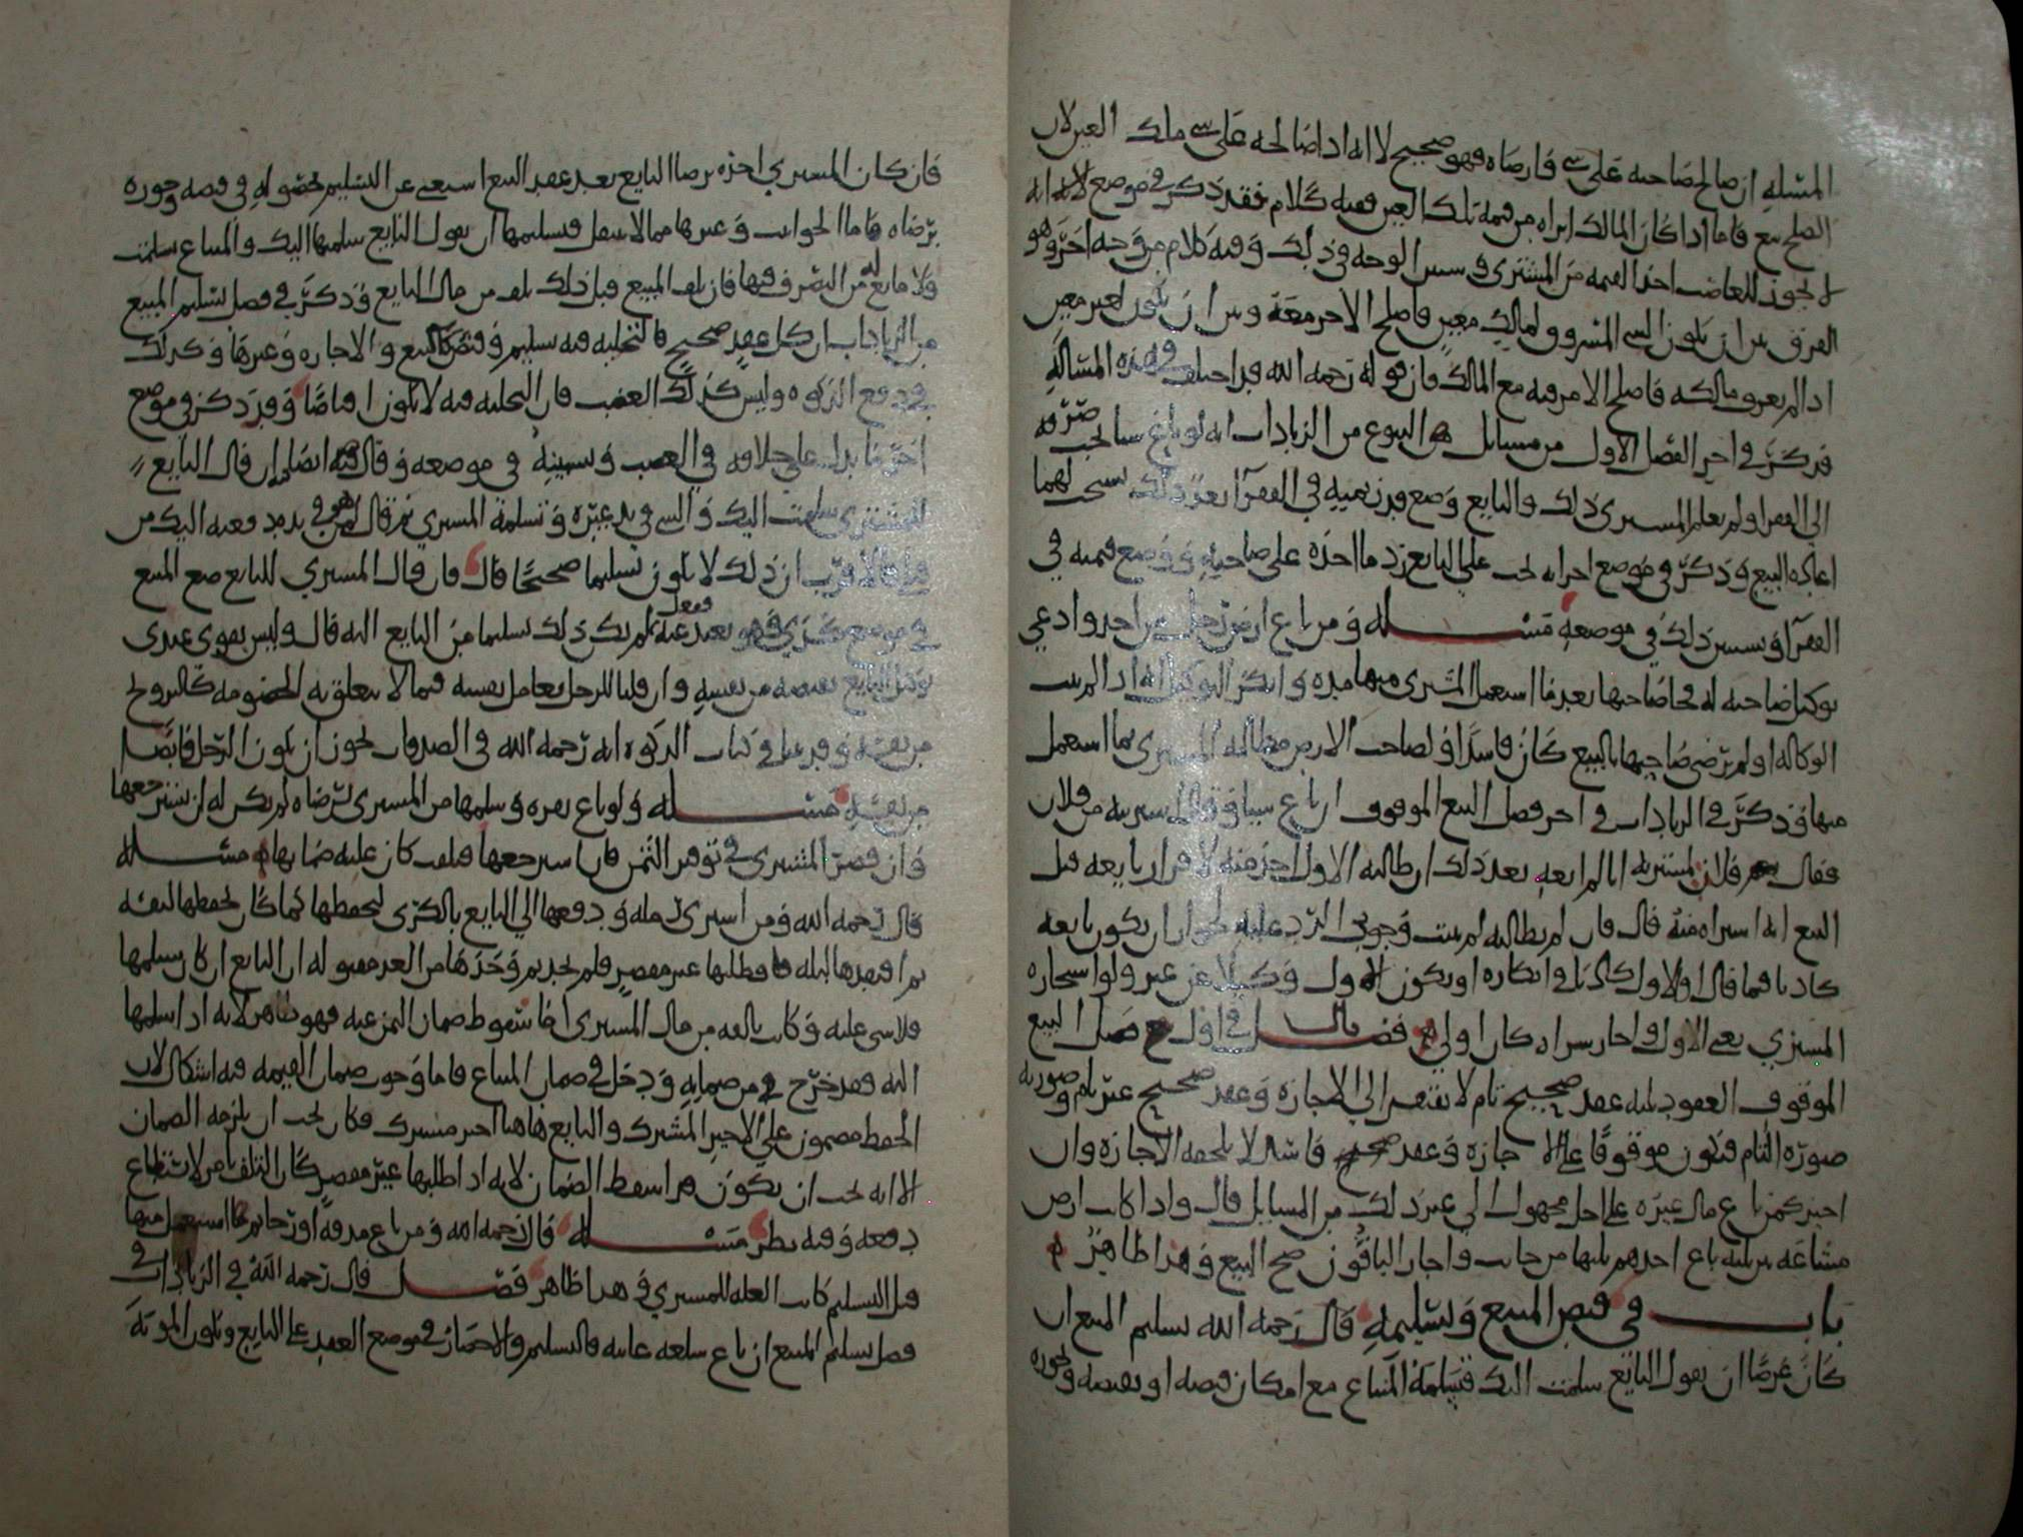 المسله ان صالح صاحبه على شي فارضاه فهو صحيح لا انه اذا صالحه على شي ملك العين لان
الصلح بيع فاما اذا كان المالك ابراه من قيمة تلك العين ففيه كلام فقد ذكر في موضع لانه انه
لا يجوز للغاصب اخذ القيمه من المشتري في الوجه في ذلك وفيه كلام من وجه اخر وهو
الفرق بين ان يكون الشي المسروق لمالك معين فاصلح الامر معه وبين ان يكون لغير معين
اذا لم يعرف مالكه فاصلح الامر فيه مع المالك فان قوله رحمه الله قد اختلف في هذه المساله
قد ذكر في اخر الفصل الاول من مسايل البيوع من الزيادات انه لو باع شيا يجب صرفه
الى الفقرا ولم يعلم المشتري ذلك والبايع وضع قدر ثمنه في الفقرا بعد ذلك يستحب لهما
اعادة البيع وذكر في موضع اخر انه يجب على البايع رد ما اخذه على صاحبه ووضع قيمته في
الفقرا وسنبين ذلك في موضعه مسله ومن باع ارض رجل من احد وادعى
توكيل صاحبه له فجا صاحبها بعد ما استعمل المشتري فيها مده وانكر التوكيل انه اذا لم يثبت
الوكاله او لم يرضى صاحبها بالبيع كان فاسدا ولصاحب الارض مطالبة المشتري بما استعمل
منها وذكر في الزيادات في اخر فصل البيع الموقوف ان باع شيا وقال شريته من فلان
فقال فلان لمشتريه انا لم ابعه بعد ذلك ان طالبه الاول اخذ منه لاقرار بايعه قبل
البيع انه اشتراه منه قال فان لم يطالبه لم يثبت وجوب الرد عليه لجواز ان يكون بايعه
كاذبا فيما قال او الاول كاذبا في انكاره او يكون الاول وكيلا عن غير ولو استجازه
المشتري يعني الاول واجاز شراه كان اولى فصل قال في اول فصل البيع
الموقوف العقود ثلثه عقد صحيح تام لا يفتقر الى الاجازه وعقد صحيح غير تام وصورته
صورة التام فيكون موقوفا على الاجازه وعقد فاسد لا يلحقه الاجازه وان
اجيز كمن باع مال غيره على اجل مجهول الى غير ذلك من المسايل قال واذا كانت ارض
مشاعه بين ثلثه باع احدهم ثلثها من جانب واجاز الباقون صح البيع وهذا ظاهر
باب في قبض المبيع وتسليمه قال رحمه الله تسليم المبيع ان
كان عرضا ان يقول البايع سلمت اليك فتسلمه المبتاع مع امكان قبضه او يقبضه وحوزه
فان كان المشتري اخذه برضا البايع بعد عقد البيع استغنى عن التسليم لحصوله في قبضه وحوزه
برضاه فاما الحوانيت وغيرها مما لا ينقل فتسليمها ان يقول البايع سلمتها اليك والمبتاع سلمت
ولا مانع له من التصرف فيها فان تلف المبيع قبل ذلك تلف من مال البايع وذكر في فصل تسليم المبيع
من الزيادات ان كل عقد صحيح فالتخليه فيه تسليم وقبض كالبيع والاجاره وغيرها وكذلك
في دفع الزكوه وليس كذلك الغصب فان التخليه فيه لا تكون اقباضا وقد ذكر في موضع
اخر ما يدل على خلافه في الغصب وسنبينه في موضعه وقال فيه ايضا ان قال البايع
للمشتري سلمت اليك والشي في يد غيره وتسلمه المشتري ثم قال لمن هو في يده دفعه اليك من
فلا فالاقرب ان ذلك لا يكون تسليما صحيحا قال فان قال المشتري للبايع ضع المبيع
في موضع كذي وهو بعيد عنه ففعل لم يكن ذلك تسليما من البايع اليه قال وليس يقوى عندي
توكل البايع لقبضه من نفسه وان قلنا للرجل يعامل نفسه فيما لا يتعلق به الخصومه كالتزويج
من نفسه وقد في كتاب الزكوه انه رحمه الله في الصدقات يجوز ان يكون الرجل قابضا
من نفسه مسله ولو باع بقره وسلمها من المشتري برضاه لم يكن له ان يسترجعها
وان قصر المشتري في توفير الثمن فان استرجعها فتلفت كان عليه ضمانها مسله
قال رحمه الله ومن اشترى رمله ودفعها الى البايع بالكرى ليحفظها كما كان يحفظها لنفسه
ثم افتقدها ليله فطلبها غير مقصر فلم يجد ثم وجدها من الغد مقتوله ان البايع ان كان سلمها
فلا شي عليه وكانت تالفه من مال المشتري اما سقوط ضمان الثمن عنه فهو ظاهر لانه اذا سلمها
اليه فقد خرج من ضمانه ودخل في ضمان المبتاع فاما وجوب ضمان القيمه فيه اشكال لان
الحفظ مضمون على الاجير المشترك والبايع هاهنا اجير مشترك فكان يجب ان يلزمه الضمان
الا انه يجب ان يكون قد اسقط الضمان لانه اذا طلبها غير مقصر كان التلف بامر لا يستطاع
دفعه وفيه نظر مسله قال رحمه الله ومن باع مدقه او رحا ثم استعمل فيها
قبل التسليم كانت الغله للمشتري وهذا ظاهر فصل قال رحمه الله في الزيادات في
فصل تسليم المبيع ان باع سلعه غايبه فالتسليم والاحضار في موضع العقد على البايع وتكون المونه